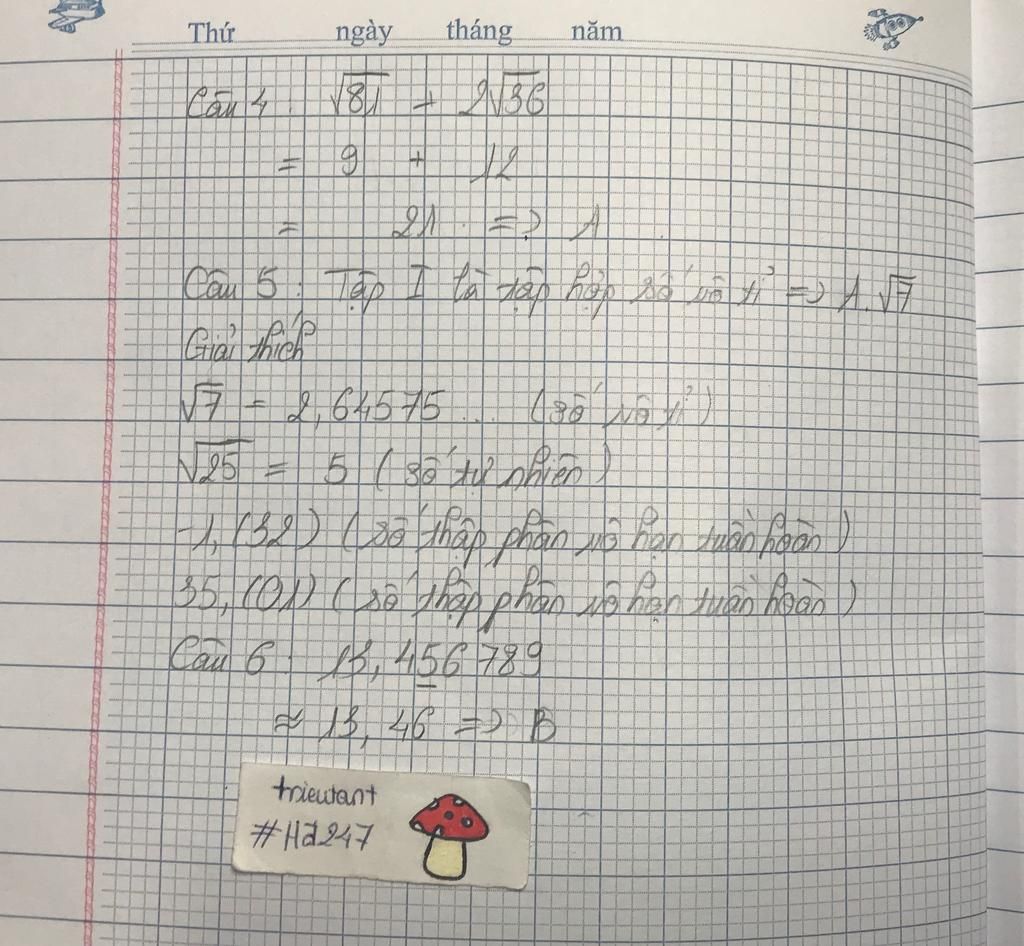 Thứ ngày tháng năm
Câu 4 : √81 + 2√36
= 9 + 12
= 21 => A
Câu 5 : Tập I là tập hợp số vô tỉ => A. √7
Giải thích
√7 = 2,64575... (số vô tỉ)
√25 = 5 (số tự nhiên)
-1,(32) (số thập phân vô hạn tuần hoàn)
35,(01) (số thập phân vô hạn tuần hoàn)
Câu 6 : 13,456789
≈ 13,46 => B
trieutant
#Hd247